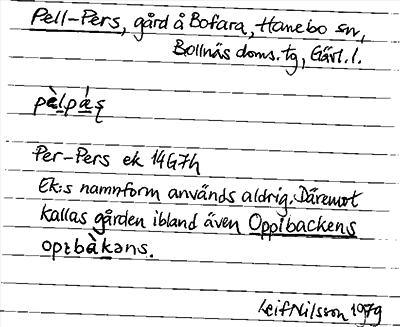 Pell-Pers, gård å Bofara, Hanebo sn,
Bollnäs doms. tg, Gävl. l.
pèlpá̱ʂ
Per-Pers ek 14G7h
Ek:s namnform används aldrig. Däremot
kallas gården ibland även Opplbackens
opɩbàkəns.
Leif Nilsson 1979